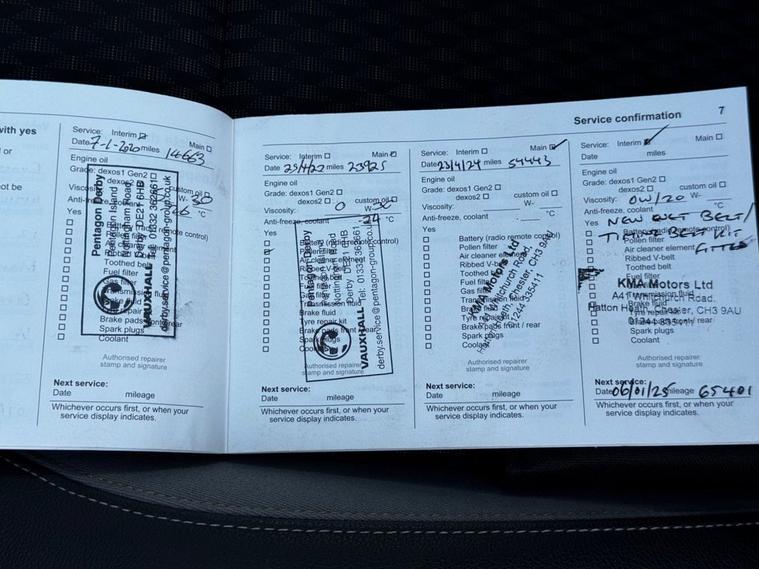 with yes
l or
not be
Service: Interim
Main
Date 7-1-2020 miles 14663
Engine oil
Grade: dexos1 Gen2
dexos2
custom oil
Viscosity:
W- 30
Anti-freeze, coolant
°C
Yes
Toothed belt
Fuel filter
Brake pads
rear
Spark plugs
Coolant
Pentagon Derby
Nottingham Road,
Derby DE21 6HB
Tel: 01332 362661
VAUXHALL
derby.service@pentagon-group.co.uk
Authorised repairer
stamp and signature
Next service:
Date
mileage
Whichever occurs first, or when your
service display indicates.
Service: Interim
Main
Date miles 23925
Engine oil
Grade: dexos1 Gen2
dexos2
custom oil
Viscosity: 0 W-
Anti-freeze, coolant
°C
Yes
Battery (radio remote control)
Pollen filter
Air cleaner element
Ribbed V-belt
Toothed belt
Fuel filter
Brake fluid
Tyre repair kit
Brake pads front / rear
Spark plugs
Pentagon Derby
VAUXHALL
Tel: 01332 362661
derby.service@pentagon-group.co.uk
Authorised repairer
stamp and signature
Next service:
Date
mileage
Whichever occurs first, or when your
service display indicates.
Service: Interim
Main
Date 23/4/24 miles 54443
Engine oil
Grade: dexos1 Gen2
dexos2
custom oil
Viscosity:
W-
Anti-freeze, coolant
°C
Yes
Battery (radio remote control)
Pollen filter
Air cleaner element
Ribbed V-belt
Toothed belt
Fuel filter
Gas filter
Transmission fluid
Brake fluid
Tyre repair kit
Brake pads front / rear
Spark plugs
Coolant
KMA Motors Ltd
A41 Whitchurch Road,
Hatton Heath, Chester, CH3 9AU
01244 335411
Authorised repairer
stamp and signature
Next service:
Date
mileage
Whichever occurs first, or when your
service display indicates.
Service confirmation
7
Service: Interim
Main
Date
miles
Engine oil
Grade: dexos1 Gen2
dexos2
custom oil
Viscosity: 0W/20 W-
Anti-freeze, coolant
°C
Yes
NEW WET BELT/
TIMING BELT KIT
FITTED
Battery (radio remote control)
Pollen filter
Air cleaner element
Ribbed V-belt
Toothed belt
Fuel filter
KMA Motors Ltd
A41 Whitchurch Road,
Hatton Heath, Chester, CH3 9AU
Spark plugs
Coolant
Authorised repairer
stamp and signature
Next service:
Date 06/01/25 mileage 65401
Whichever occurs first, or when your
service display indicates.